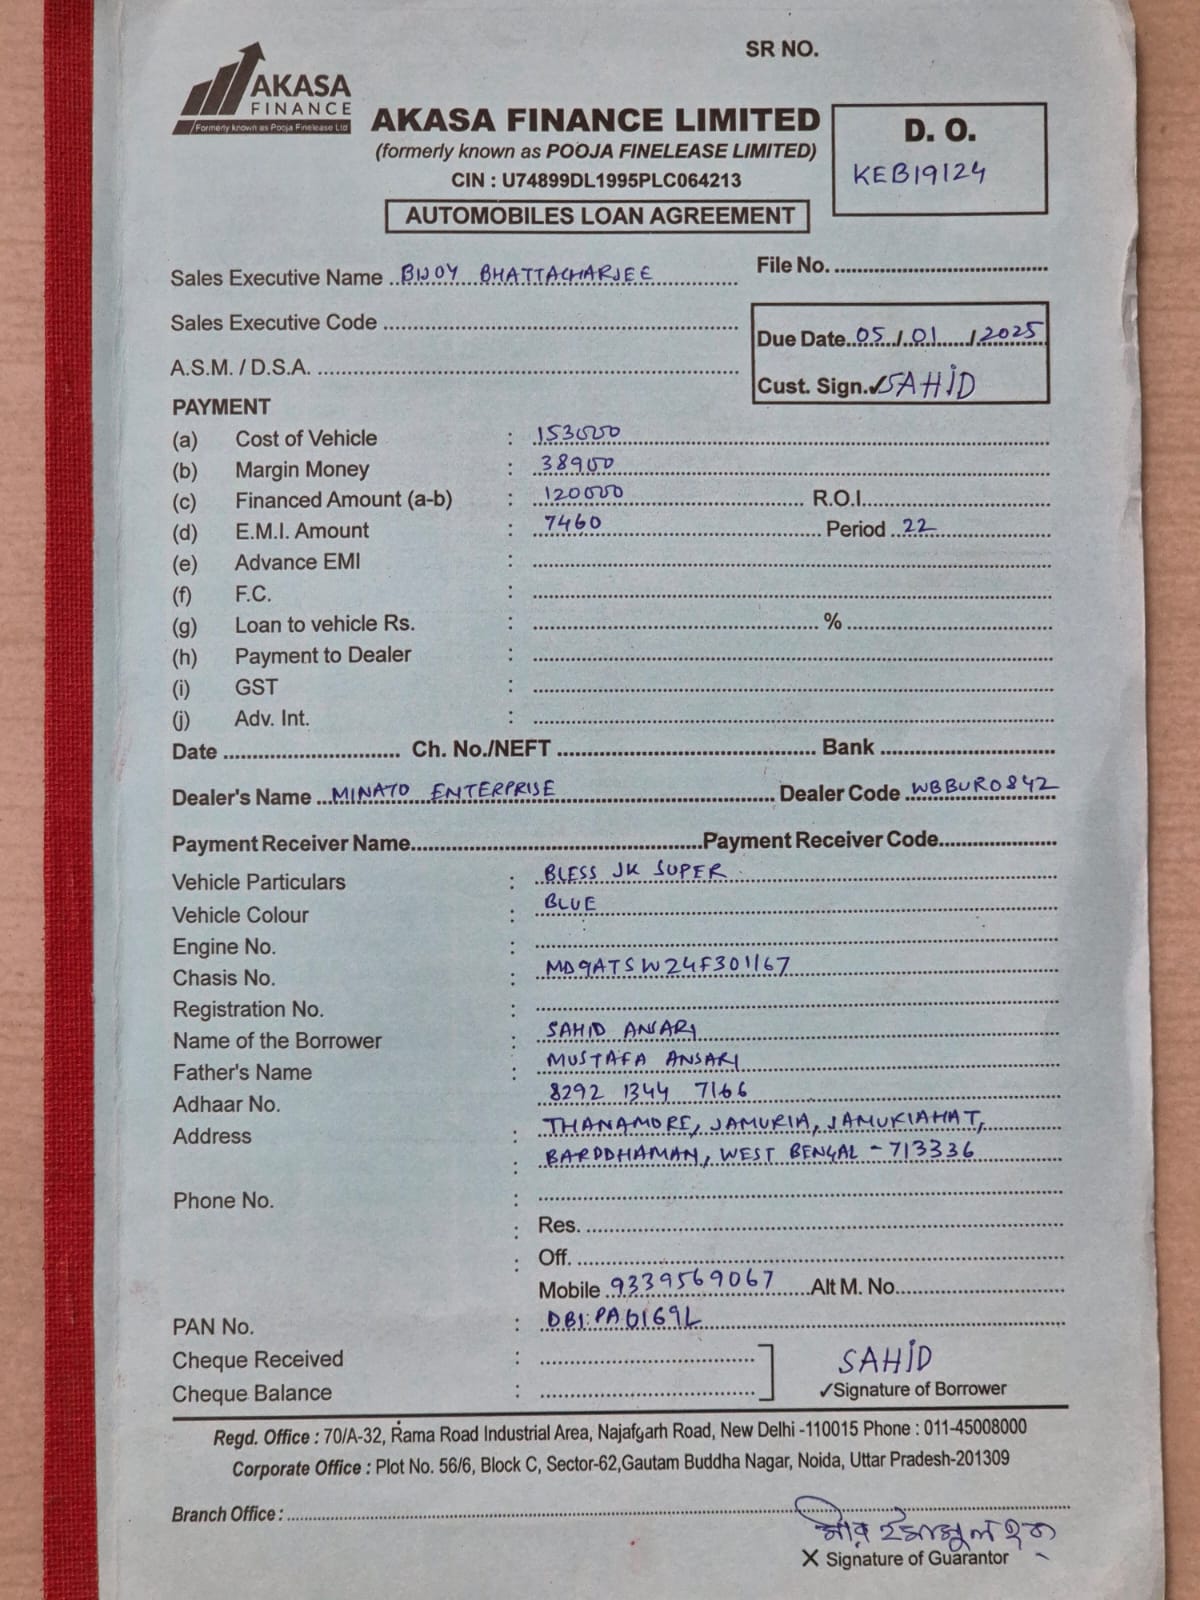 SR NO.
AKASA
FINANCE
Formerly known as Pooja Finelease Ltd
AKASA FINANCE LIMITED
(formerly known as POOJA FINELEASE LIMITED)
CIN : U74899DL1995PLC064213
AUTOMOBILES LOAN AGREEMENT
D. O.
KEB19124
Sales Executive Name BIJOY BHATTACHARJEE
File No.
Sales Executive Code
Due Date 05/01/2025
A.S.M. / D.S.A.
Cust. Sign. ✓SAHID
PAYMENT
(a) Cost of Vehicle : 153000
(b) Margin Money : 38900
(c) Financed Amount (a-b) : 120000 R.O.I.
(d) E.M.I. Amount : 7460 Period 22
(e) Advance EMI :
(f) F.C. :
(g) Loan to vehicle Rs. : %
(h) Payment to Dealer :
(i) GST :
(j) Adv. Int. :
Date Ch. No./NEFT Bank
Dealer's Name MINATO ENTERPRISE Dealer Code WBBUR0842
Payment Receiver Name Payment Receiver Code
Vehicle Particulars : BLESS JK SUPER
Vehicle Colour : BLUE
Engine No. :
Chasis No. : MD9ATSW24F301167
Registration No. :
Name of the Borrower : SAHID ANSARI
Father's Name : MUSTAFA ANSARI
Adhaar No. 8292 1344 7166
Address : THANAMORE, JAMURIA, JAMURIAHAT,
: BARDDHAMAN, WEST BENGAL - 713336
Phone No. :
: Res.
: Off.
Mobile 9339569067 Alt M. No.
PAN No. : DBIPA6169L
Cheque Received :
SAHID
Cheque Balance :
✓Signature of Borrower
Regd. Office : 70/A-32, Rama Road Industrial Area, Najafgarh Road, New Delhi -110015 Phone : 011-45008000
Corporate Office : Plot No. 56/6, Block C, Sector-62,Gautam Buddha Nagar, Noida, Uttar Pradesh-201309
Branch Office :
X Signature of Guarantor